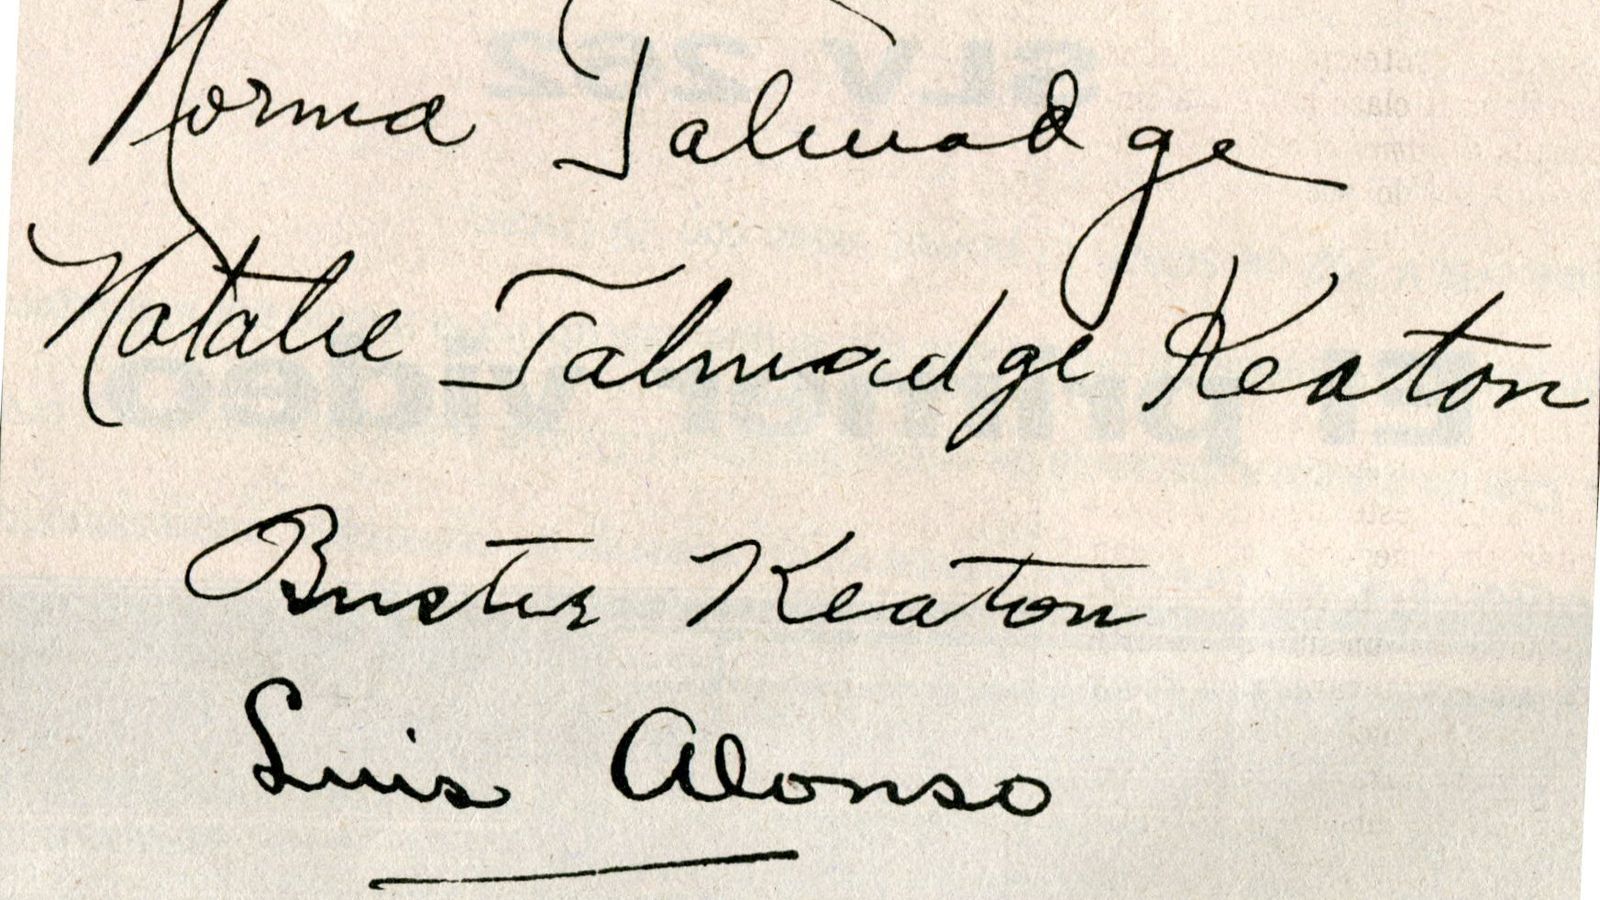 Norma Talmadge
Natalie Talmadge Keaton
Buster Keaton
Luis Alonso